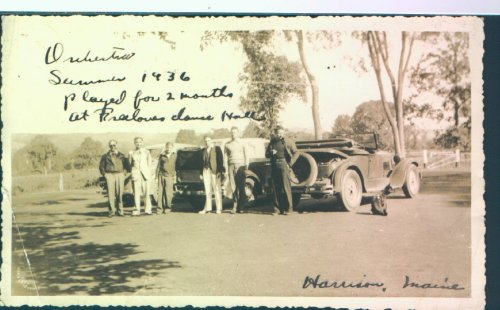 Orchestra
Summer 1936
Played for 2 months
at dance Hall
Harrison, Maine